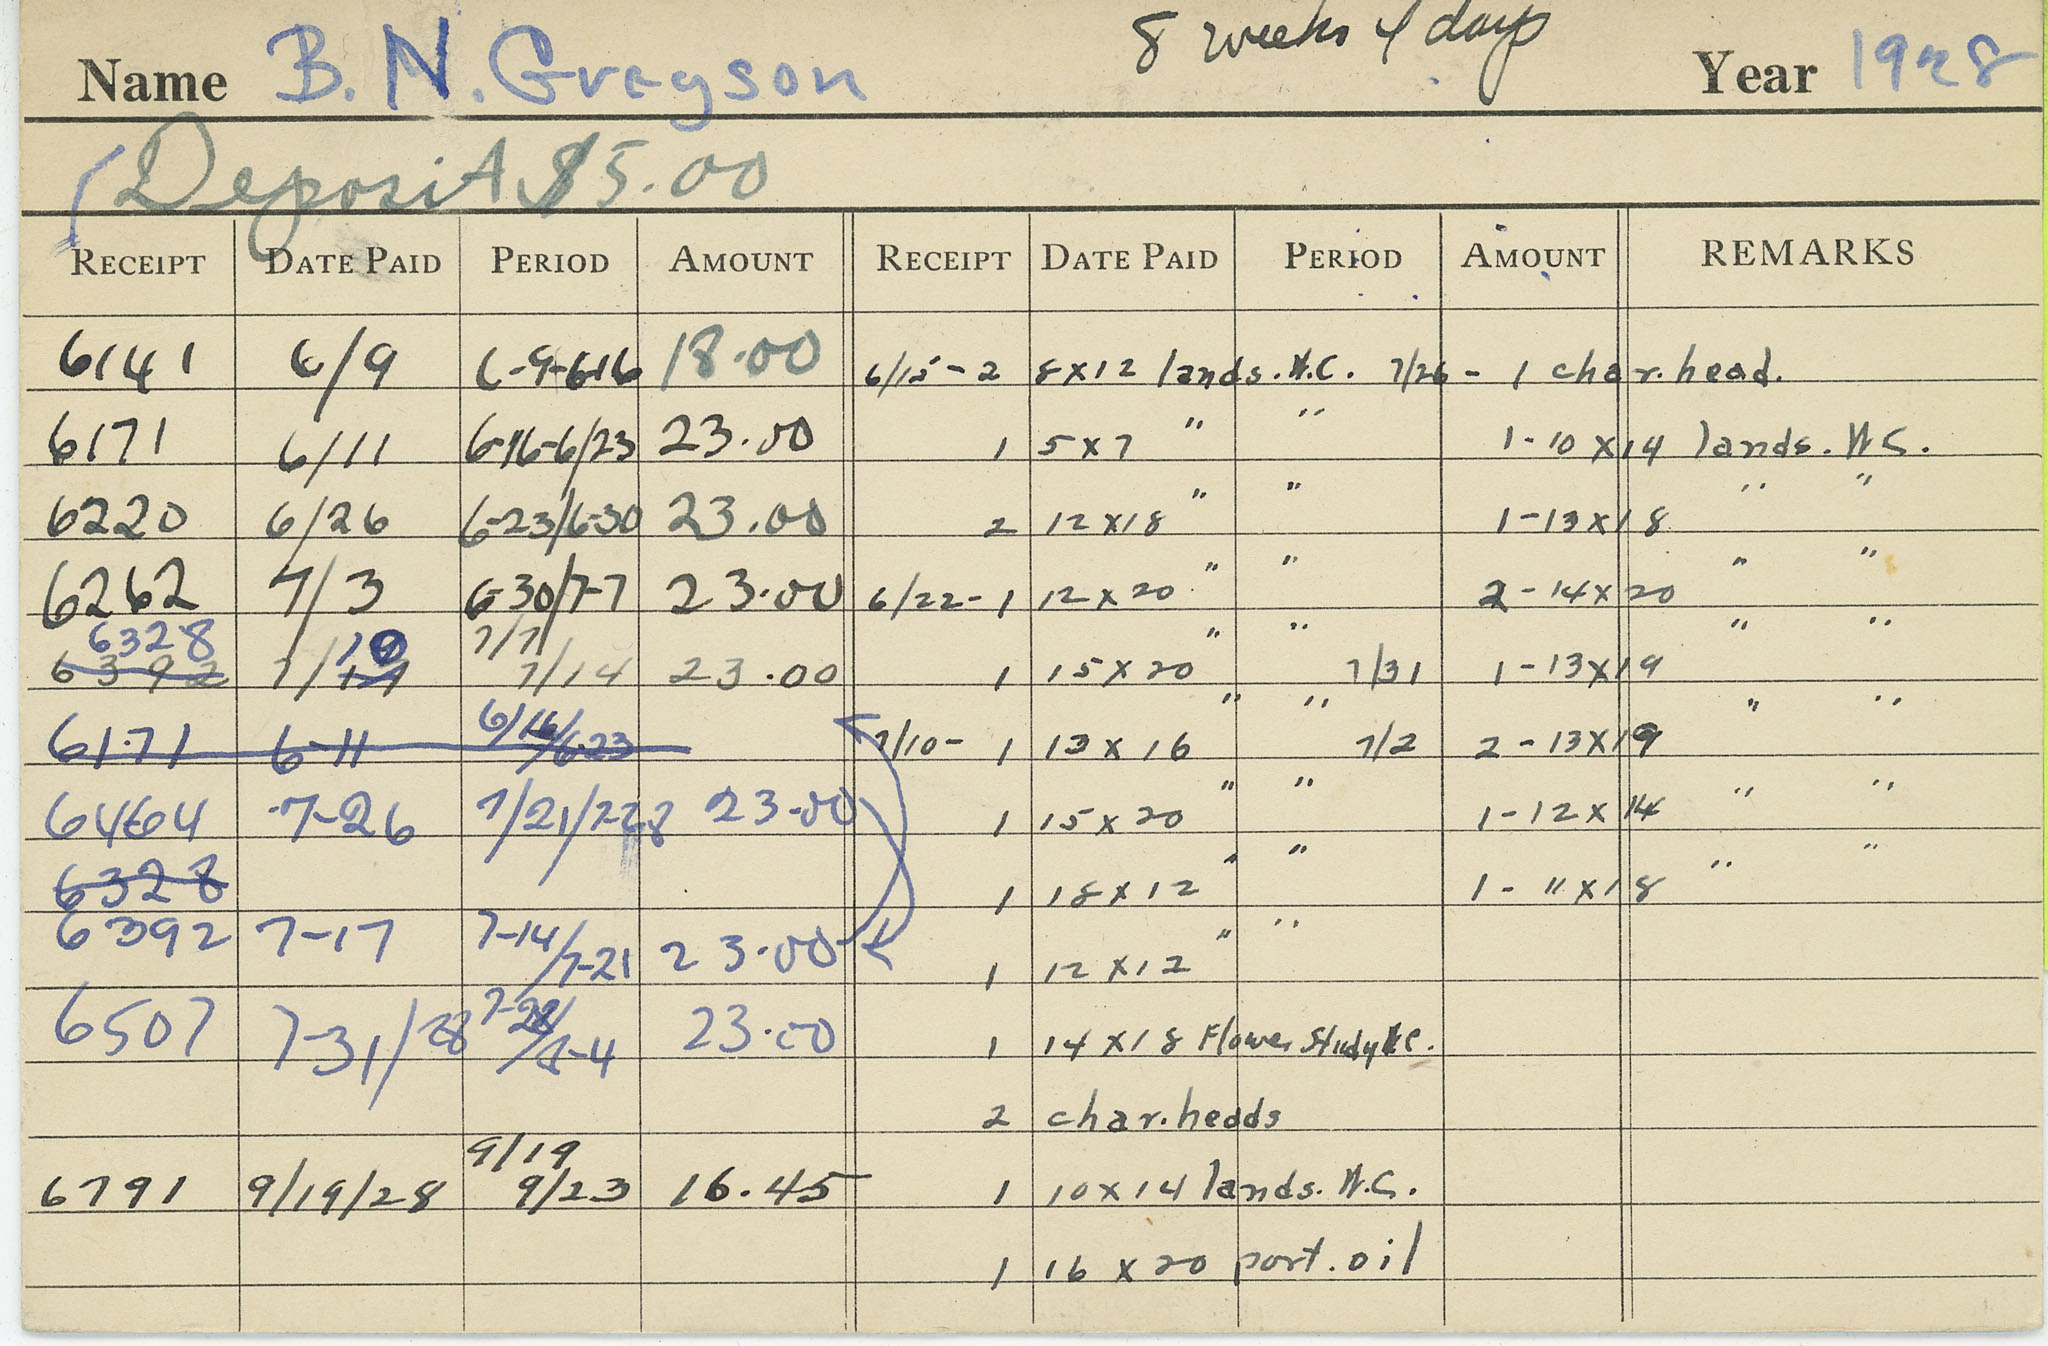 8 weeks 4 days
Name B. N. Greyson Year 1928
Deposit $5.00
RECEIPT DATE PAID PERIOD AMOUNT RECEIPT DATE PAID PERIOD AMOUNT REMARKS
6141 6/9 6-9-616 18.00 6/15-2 8x12 lands. W.C. 7/26 - 1 char. head.
6171 6/11 6-16-6/23 23.00 1 5x7 " " 1-10x14 lands. W.C.
6220 6/26 6-23/6-30 23.00 2 12x18 " " 1-13x18 " "
6262 7/3 6-30/7-7 23.00 6/22-1 12x20 " " 2-14x20 " "
6328 10 7/7
6392 7/17 7/14 23.00 1 15x20 " " 7/31 1-13x19 " "
6171 6-11 6/16/6-23 7/10-1 13x16 " " 7/2 2-13x19 " "
6464 7-26 7/21/7-28 23.00 1 15x20 " " 1-12x14 " "
6328 1 18x12 " " 1-11x18 " "
6392 7-17 7-14/7-21 23.00 1 12x12 " "
6507 7-31/28 7-28/8-4 23.00 1 14x18 Flower Study W.C.
2 char. heads
9/19
6791 9/19/28 9/23 16.45 1 10x14 lands. W.C.
1 16x20 port. oil